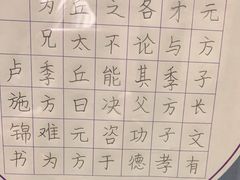 元方子长文有
才与季方子孝
各论其父功德
之不能决咨于
丘太丘曰元方
为兄季方难为
卢施锦书